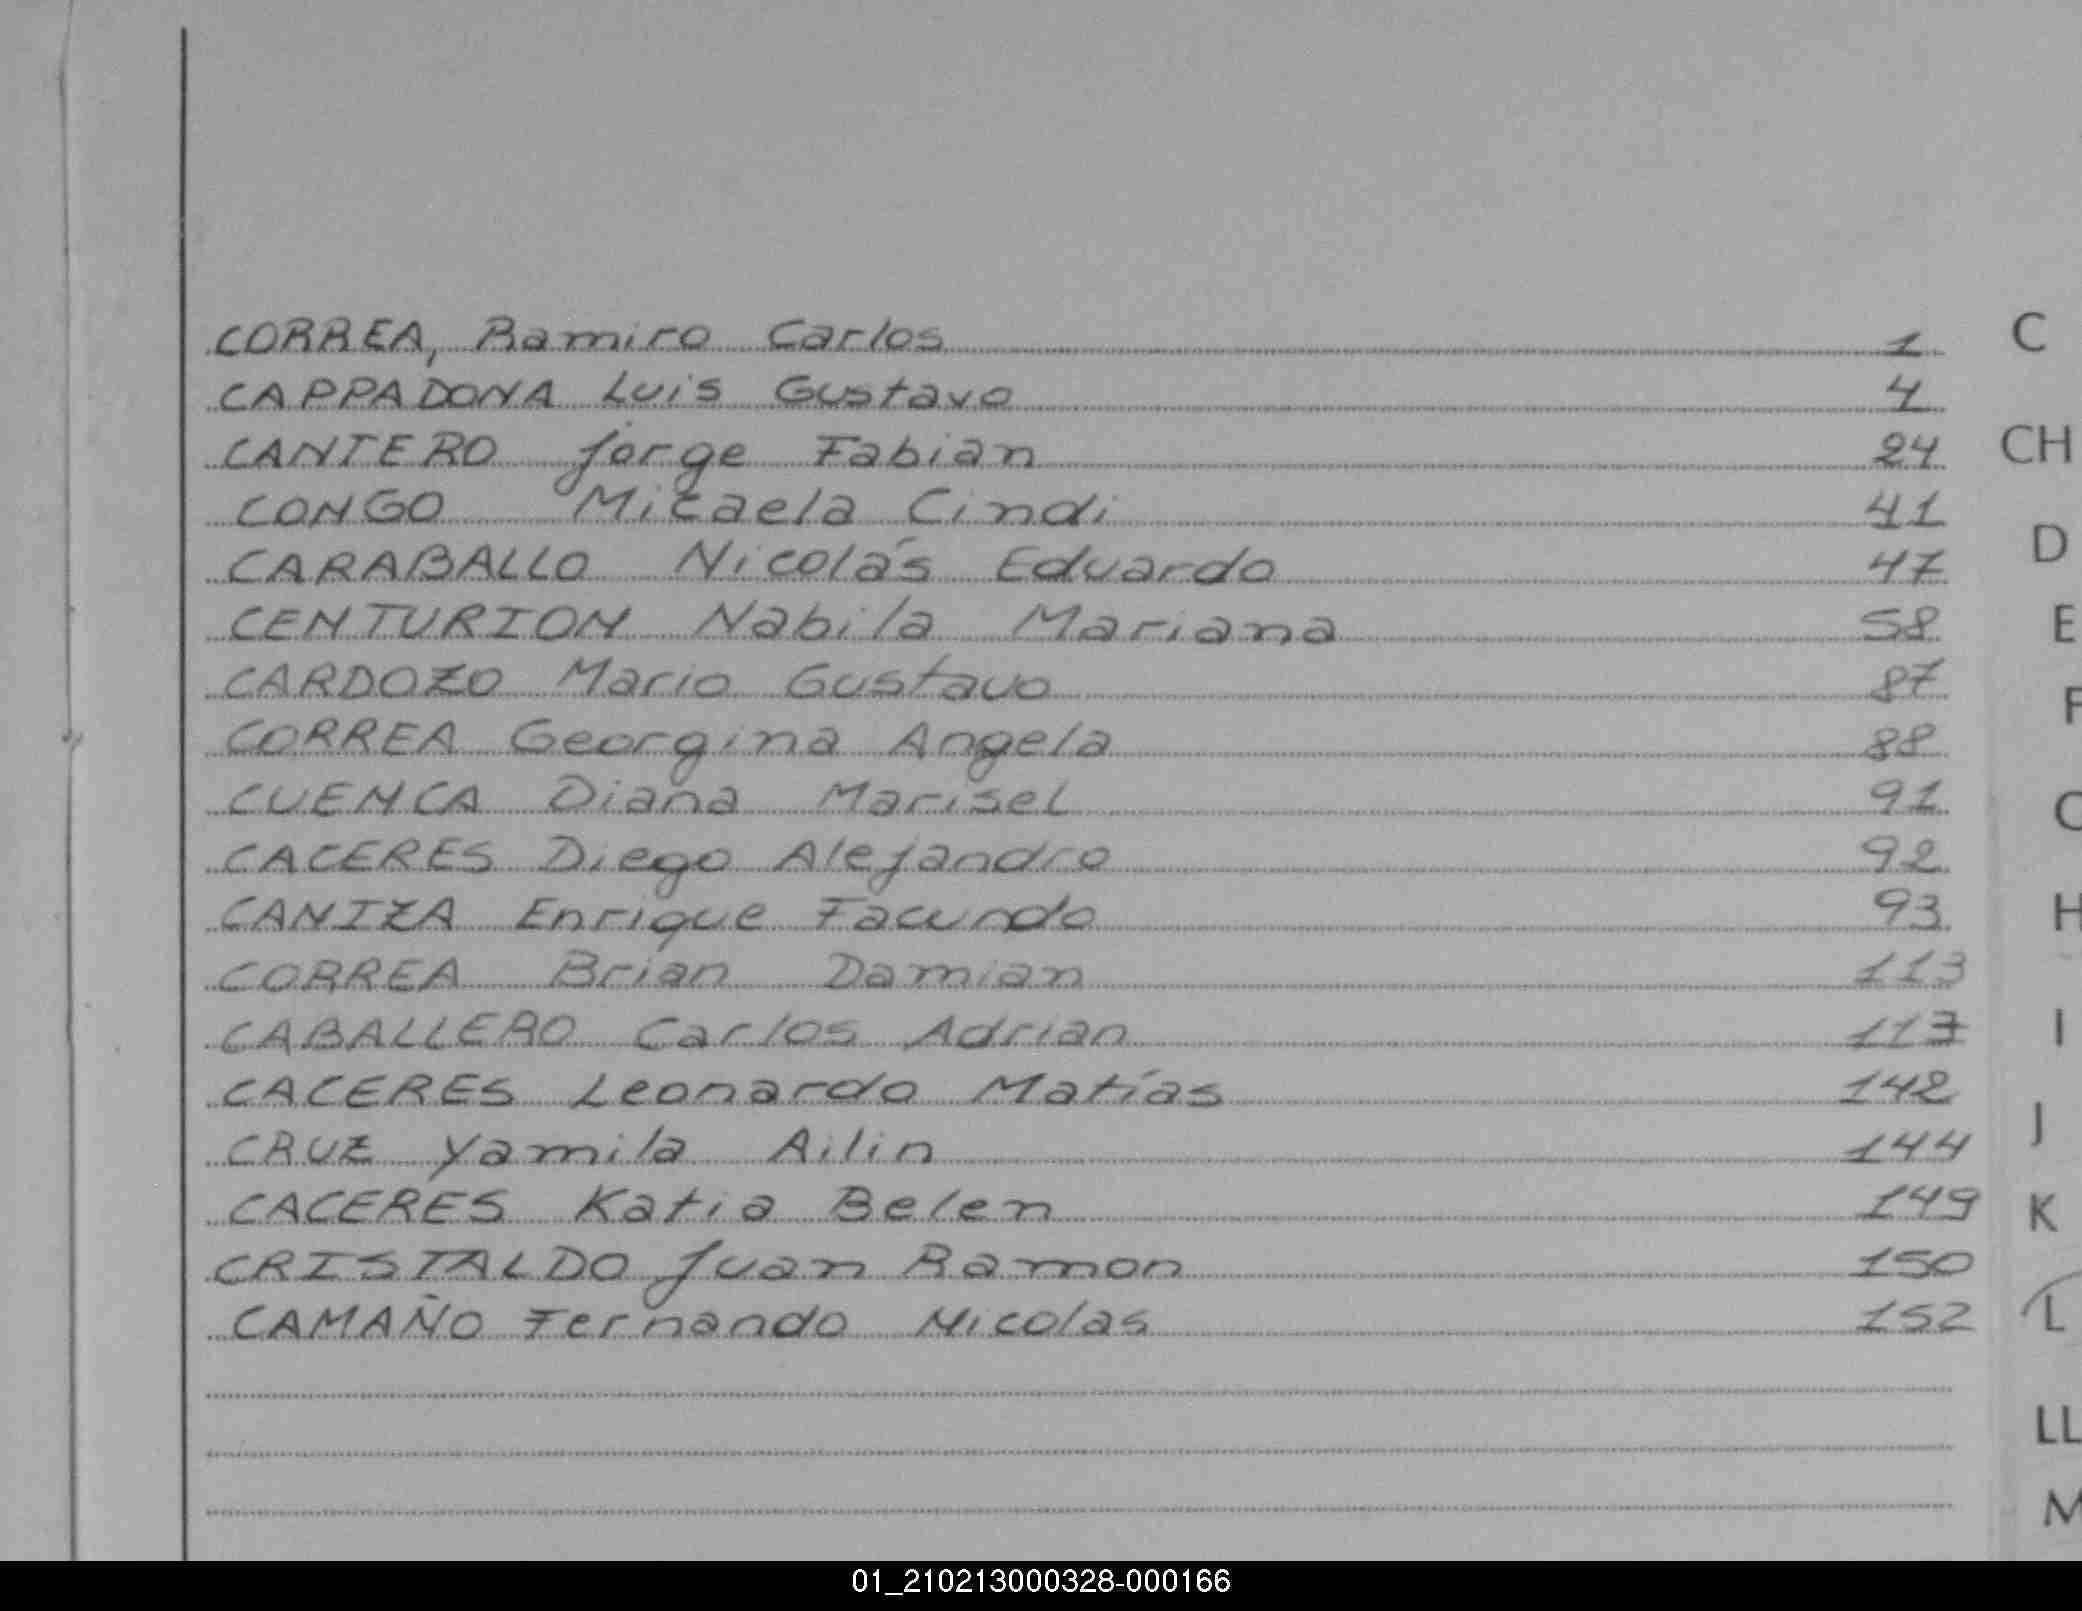 CORREA, Ramiro Carlos 1
CAPPADONA Luis Gustavo 4
CANTERO Jorge Fabian 24
CONGO Micaela Cindi 41
CARABALLO Nicolás Eduardo 47
CENTURION Nabila Mariana 58
CARDOZO Mario Gustavo 87
CORREA Georgina Angela 88
CUENCA Diana Marisel 91
CACERES Diego Alejandro 92
CANIZA Enrique Facundo 93
CORREA Brian Damian 113
CABALLERO Carlos Adrian 117
CACERES Leonardo Matías 142
CRUZ Yamila Ailin 144
CACERES Katia Belen 149
CRISTALDO Juan Ramon 150
CAMAÑO Fernando Nicolas 152
C
CH
D
E
F
H
I
J
K
L
LL
M
01_210213000328-000166